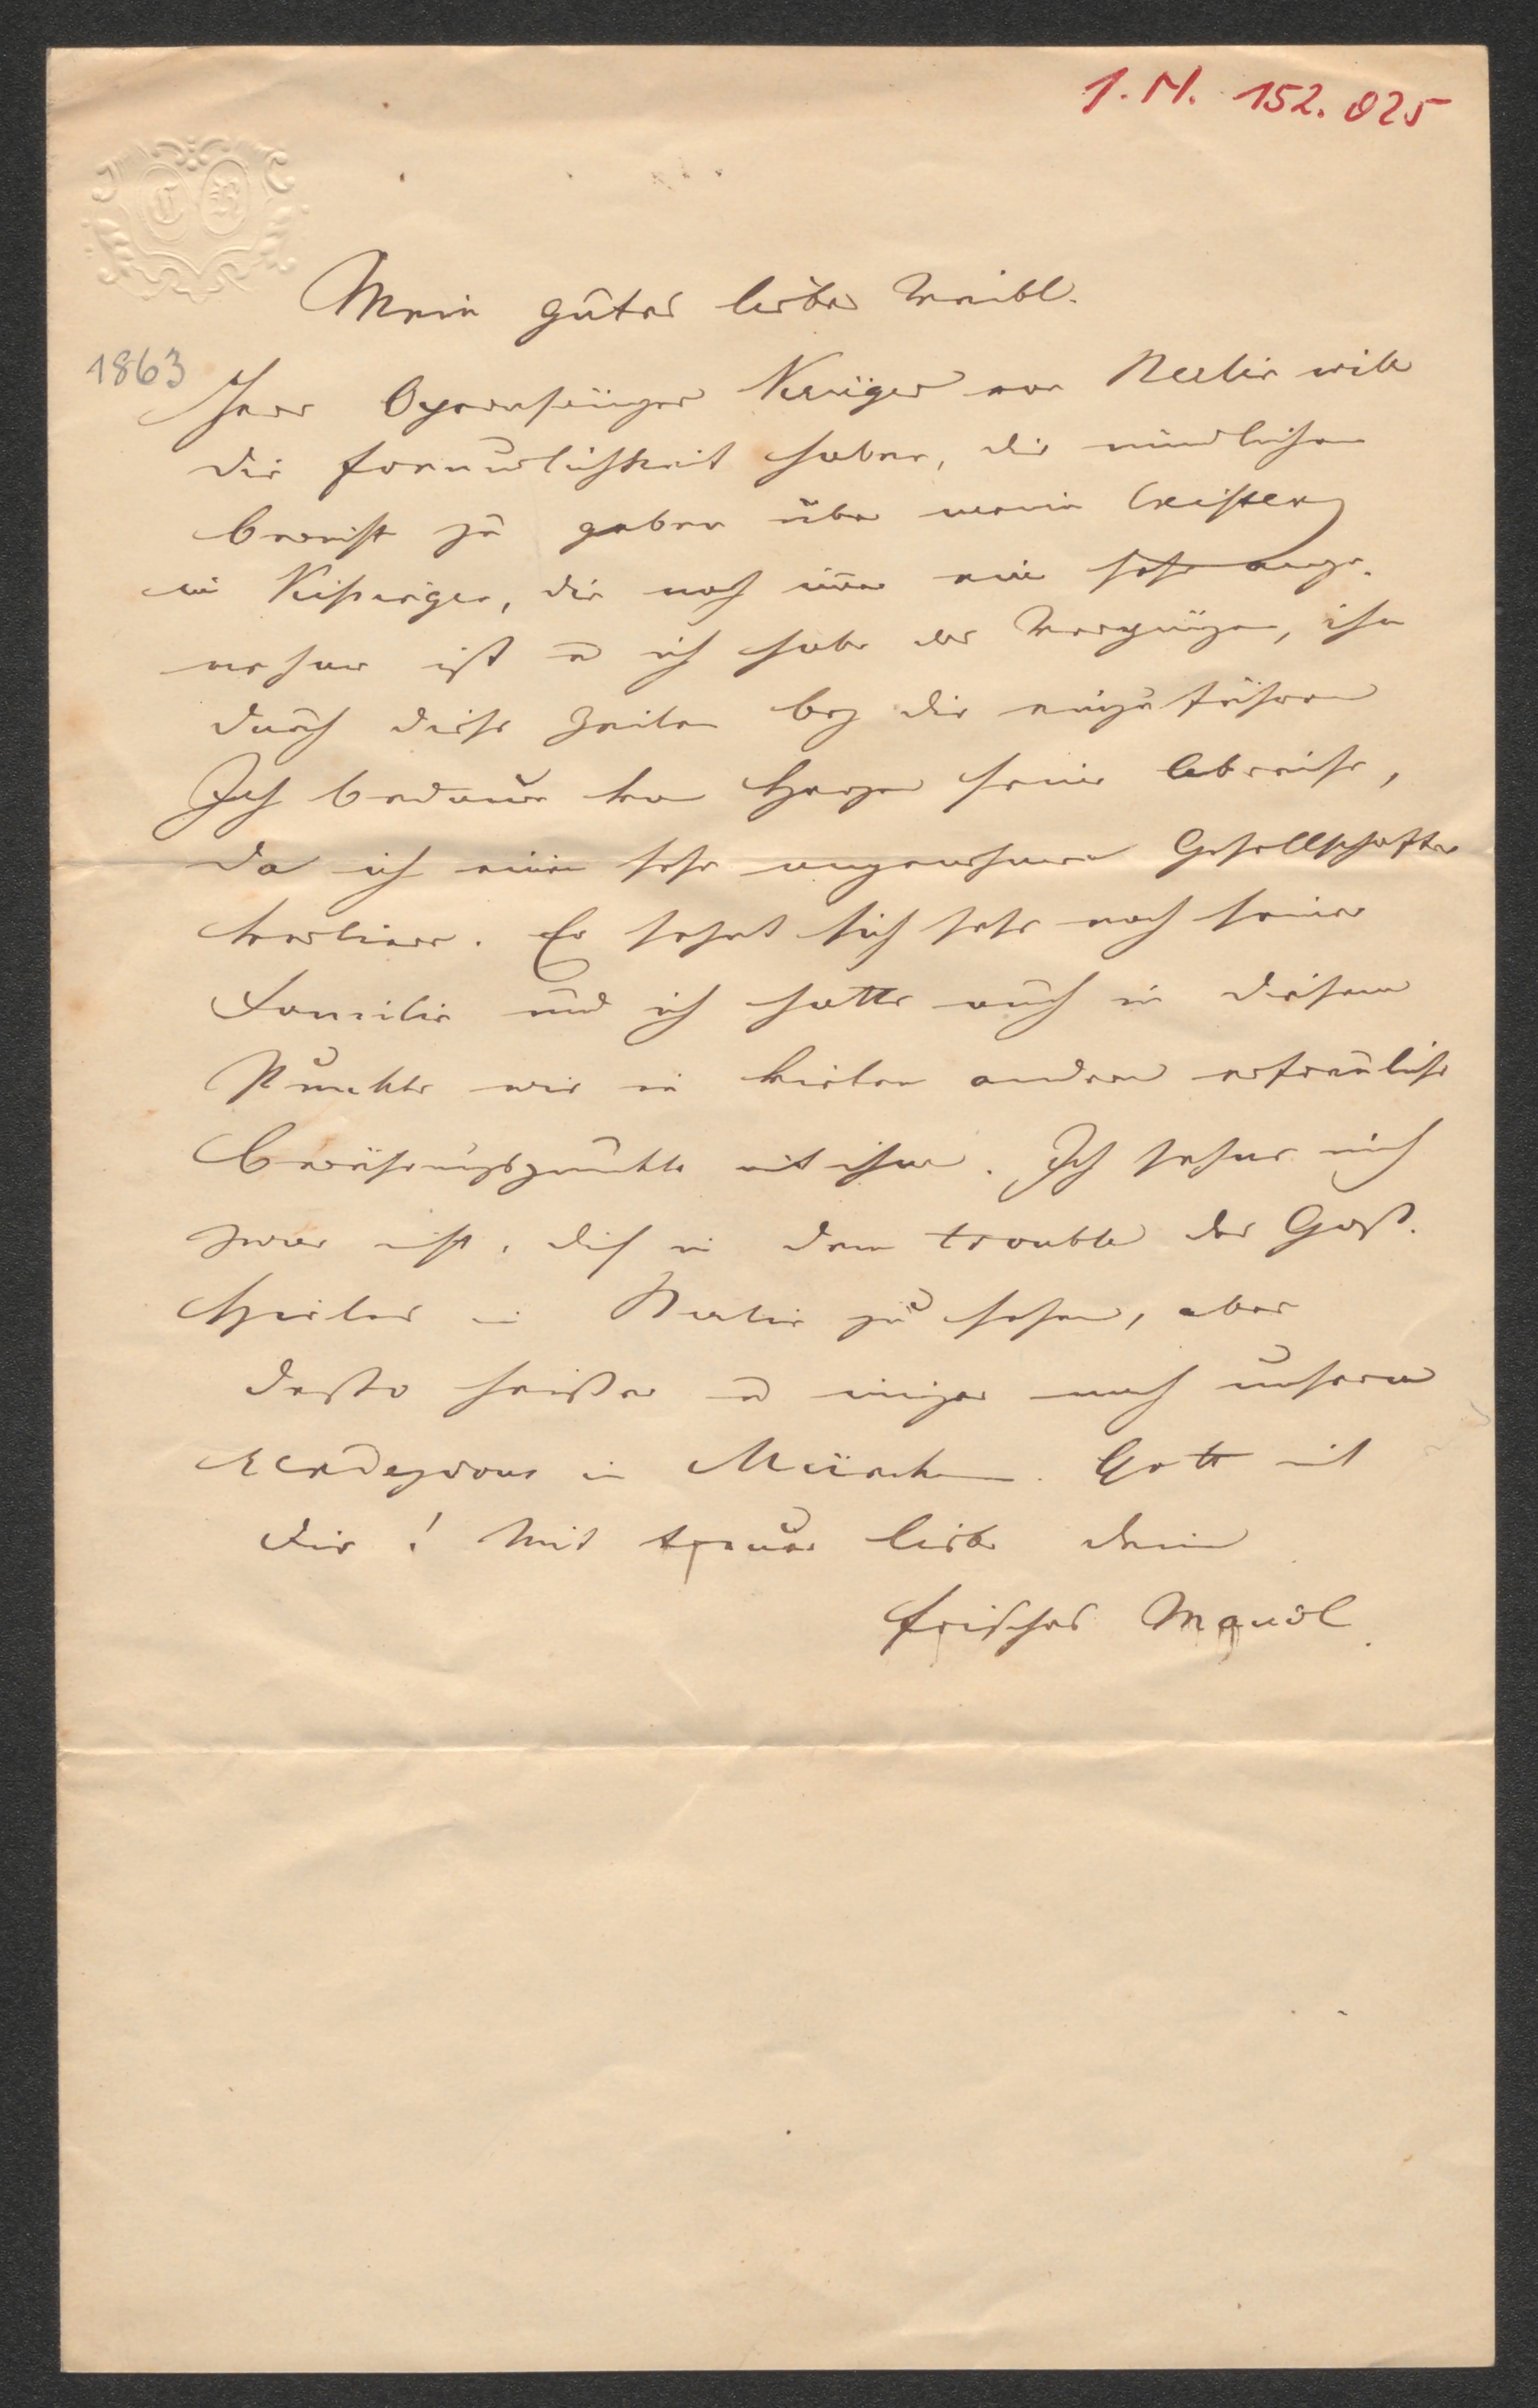 I.N. 152.025
C B
Mein gutes liebes Weibl.
1863
Herr Opernsänger Krüger von Berlin will
die Freundlichkeit haben, dir mündlichen
Bericht zu geben über meine Existenz
in Kissingen, die noch im̄er eine sehr ange-
nehme ist u ich habe das Vergnügen, ihn
durch diese Zeilen bey dir einzuführen
Ich bedaure von Herzen seine Abreise,
da ich einen sehr angenehmen Gesellschafter
verliere. Er sehnt sich sehr nach seiner
Familie und ich hatte auch in diesem
Punkte wie in vielen andern erfreuliche
Berührungspunkte mit ihm. Ich sehne mich
zwar nicht, dich in dem trouble des Gast-
spieles in Berlin zu sehen, aber
desto heißer u inniger nach unserm
Rendezvous in München. Gott mit
dir! Mit treuer Liebe dein
frisches Mandl.